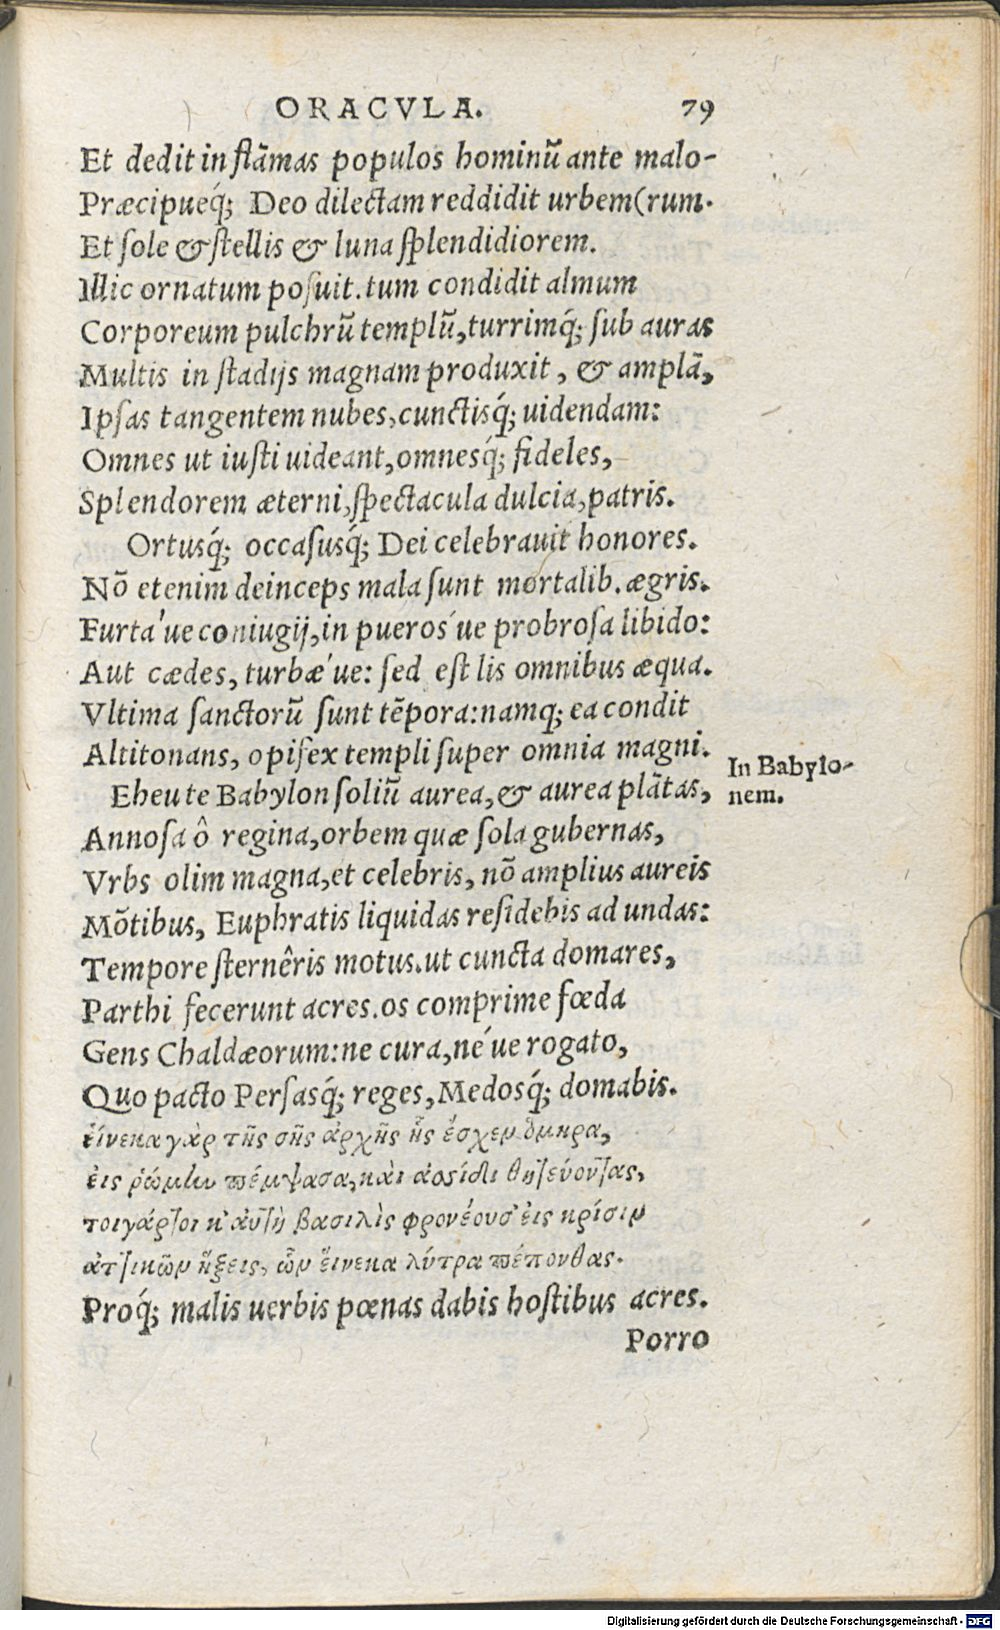 ORACVLA. 79
Et dedit in flãmas populos hominũ ante malo-
Præcipueq́; Deo dilectam reddidit urbem (rum.
Et sole & stellis & luna splendidiorem.
Illic ornatum posuit. tum condidit almum
Corporeum pulchrũ templũ, turrimq́; sub auras
Multis in stadijs magnam produxit, & amplã,
Ipsas tangentem nubes, cunctisq́; uidendam:
Omnes ut iusti uideant, omnesq́; fideles,
Splendorem æterni, spectacula dulcia, patris.
Ortusq́; occasusq́; Dei celebrauit honores.
Nõ etenim deinceps mala sunt mortalib. ægris.
Furta'ue coniugij, in pueros'ue probrosa libido:
Aut cædes, turbæ'ue: sed est lis omnibus æqua.
Vltima sanctorũ sunt tẽpora: namq; ea condit
Altitonans, opifex templi super omnia magni.
In Babylo-
nem.
Eheu te Babylon soliũ aurea, & aurea plãtas,
Annosa ô regina, orbem quæ sola gubernas,
Vrbs olim magna, et celebris, nõ amplius aureis
Mõtibus, Euphratis liquidas residebis ad undas:
Tempore sternêris motus. ut cuncta domares,
Parthi fecerunt acres. os comprime fœda
Gens Chaldæorum: ne cura, ne'ue rogato,
Quo pacto Persasq́; reges, Medosq́; domabis.
εἵνεκα γὰρ τῆς σῆς ἀρχῆς ἧς ἔσχεν ὅμηρα,
εἰς ῥώμην πέμψασα, καὶ ἀσίδι θητεύοντας,
τοιγάρτοι κ' αὐτὴ βασιλὶς φρονέουσ' εἰς κρίσιν
ἀντικῶν ἥξεις, ὧν εἵνεκα λύτρα πέπονθας.
Proq́; malis uerbis pœnas dabis hostibus acres.
Porro
Digitalisierung gefördert durch die Deutsche Forschungsgemeinschaft - DFG